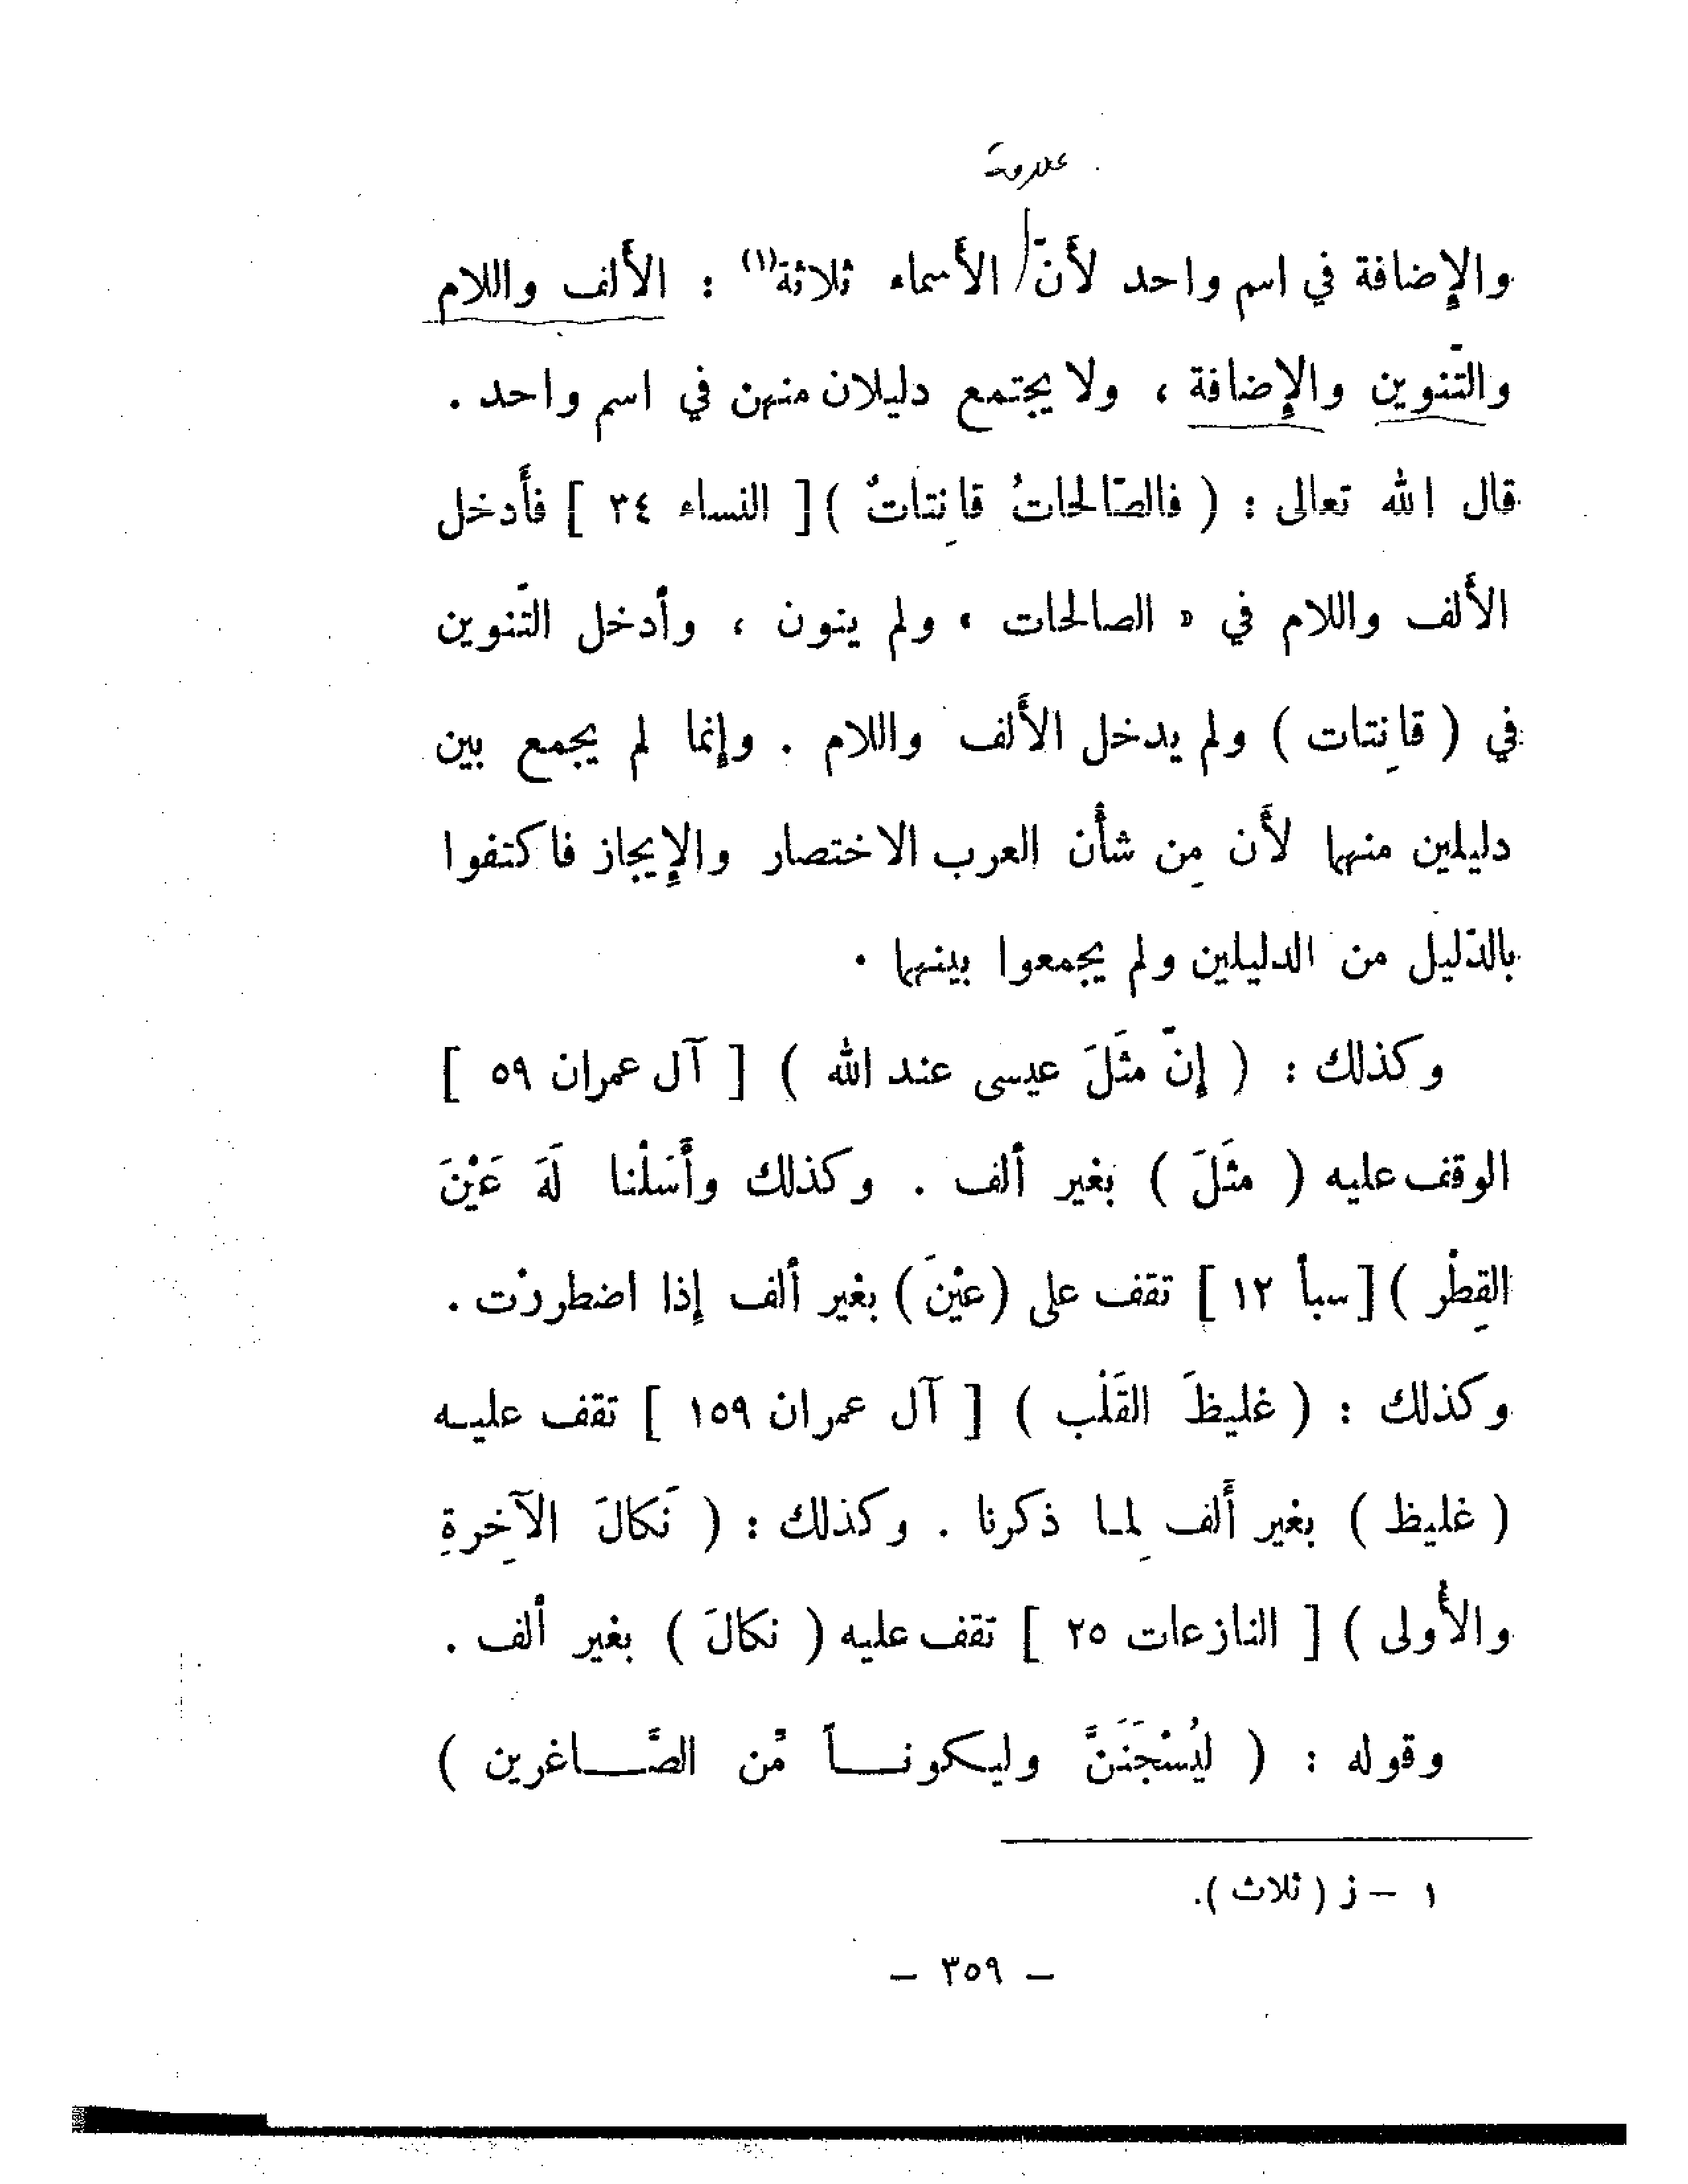 علامة
والإضافة في اسم واحد لأنّ الأسماء ثلاثة(١) : الألف واللام
والتّنوين والإضافة ، ولا يجتمع دليلان منهن في اسم واحد .
قال الله تعالى : ( فالصّالحاتُ قانِتاتٌ ) [ النساء ٣٤ ] فأَدخل
الألف واللام في « الصالحات » ولم ينون ، وأدخل التّنوين
في ( قانِتات ) ولم يدخل الأَلف واللام . وإنما لم يجمع بين
دليلين منهما لأَن مِن شأْن العرب الاختصار والإيجاز فاكتفوا
بالدّليل من الدليلين ولم يجمعوا بينهما .
وكذلك : ( إنّ مثَلَ عيسى عند الله ) [ آل عمران ٥٩ ]
الوقف عليه ( مثَلَ ) بغير ألف . وكذلك وأَسَلْنا لَهَ عَيْنَ
القِطْر ) [ سبأ ١٢ ] تقف على ( عيْنَ ) بغير ألف إذا اضطررْت .
وكذلك : ( غليظَ القَلْب ) [ آل عمران ١٥٩ ] تقف عليه
( غليظ ) بغير أَلف لِما ذكرنا . وكذلك : ( نَكالَ الآخِرةِ
والأُولى ) [ النازعات ٢٥ ] تقف عليه ( نكالَ ) بغير ألف .
وقوله : ( ليُسْجَنَنَّ وليكونـاً مِّن الصَّـاغرين )
١ - ز ( ثلاث ) .
- ٣٥٩ -